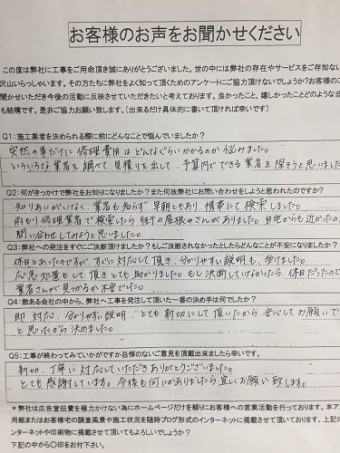 お客様のお声をお聞かせください
この度は弊社に工事をご用命頂き誠にありがとうございました。世の中には弊社の存在やサービスをご存知ない
沢山いらっしゃいます。その方たちに弊社をよく知って頂くためのアンケートにご協力頂けないでしょうか?お客様のご
聞かせいただき今後の活動に反映させていただきたいと考えております。良かったこと、嬉しかったことどのような些
も結構です。是非ご協力お願い致します。(出来るだけ具体的に書いて頂ければ幸いです)
Q1:施工業者を決められる際に前にどんなことで悩んでいましたか?
突然の事だったに修繕費用はどんなぐらいかかるのか悩みました。
いろいろな業者を調べて見積りを出して、予算内でできる業者を探そうと思いました
Q2:何がきっかけで弊社をお知りになりましたか?また何故弊社にお問い合わせをしようと思われたのですか?
知りあいがいなく業者も知らず早朝ともあり検索にて検索しました。
雨もり修理業者で検索したら街の屋根やさんがありました。自宅からも近かったの
問い合せしてみようと思いました。
Q3:弊社への発注をすぐにご決断頂けましたか?もしご決断されなかったとしたらどんなことが不安になりましたか?
休日とあったのですがすぐに対応して頂き、分かりやすい説明も、受けました。
応急処置もして頂きとても助かりました。もし決断していなかったら、休日だったので
業者さんが見つかるか不安でした。
Q4:数ある会社の中から、弊社に工事を発注して頂いた一番の決め手は何でしたか?
即対応、分かりやすい説明、とても親切にして頂いたから安心してお願いで
と思ったから決めました。
Q5:工事が終わってみていかがですか忌憚のないご意見を頂戴出来ましたら幸いです。
親切、丁寧に対応していただきありがとうございました。
とても感謝しています。今後も何かありましたら宜しくお願い致します。
*弊社は広告宣伝費を極力かけない為にホームページだけを頼りにお客様への営業活動を行っております。本ア
用紙またはお客様宅の調査風景や施工状況を随時ブログ形式のインターネットに掲載させて頂いております。上記
インターネットや印刷物に掲載させて頂いてもよろしいでしょうか?
下記の中から〇印をお付下さい。